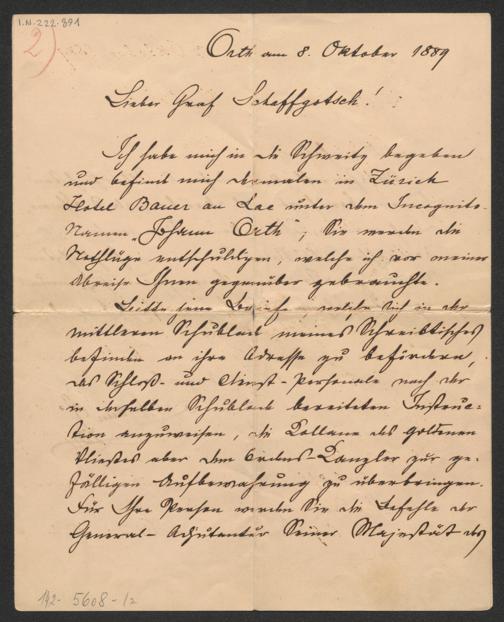 I.N. 222.891
2)
Orth am 8. Oktober 1889
Lieber Graf Schaffgotsch!
Ich habe mich in die Schweitz begeben
und befinde mich dermalen in Zürich
Hotel Bauer au Lac unter dem Incognito-
Namen „Johann Orth"; Sie werden die
Nothlüge entschuldigen, welche ich vor meiner
Abreise Ihnen gegenüber gebrauchte.
Bitte jene Briefe, welche sich in der
mittleren Schublade meines Schreibtisches
befinden an ihre Adresse zu befördern,
das Schloß- und Dienst-Personale nach der
in derselben Schublade bereiteten Instruc-
tion anzuweisen, die Collane des goldenen
Vliesses aber dem Ordens-Kanzler zur ge-
fälligen Aufbewahrung zu überbringen.
Für Ihre Person werden Sie die Befehle der
General-Adjutantur Seiner Majestät des
192- 5608-12